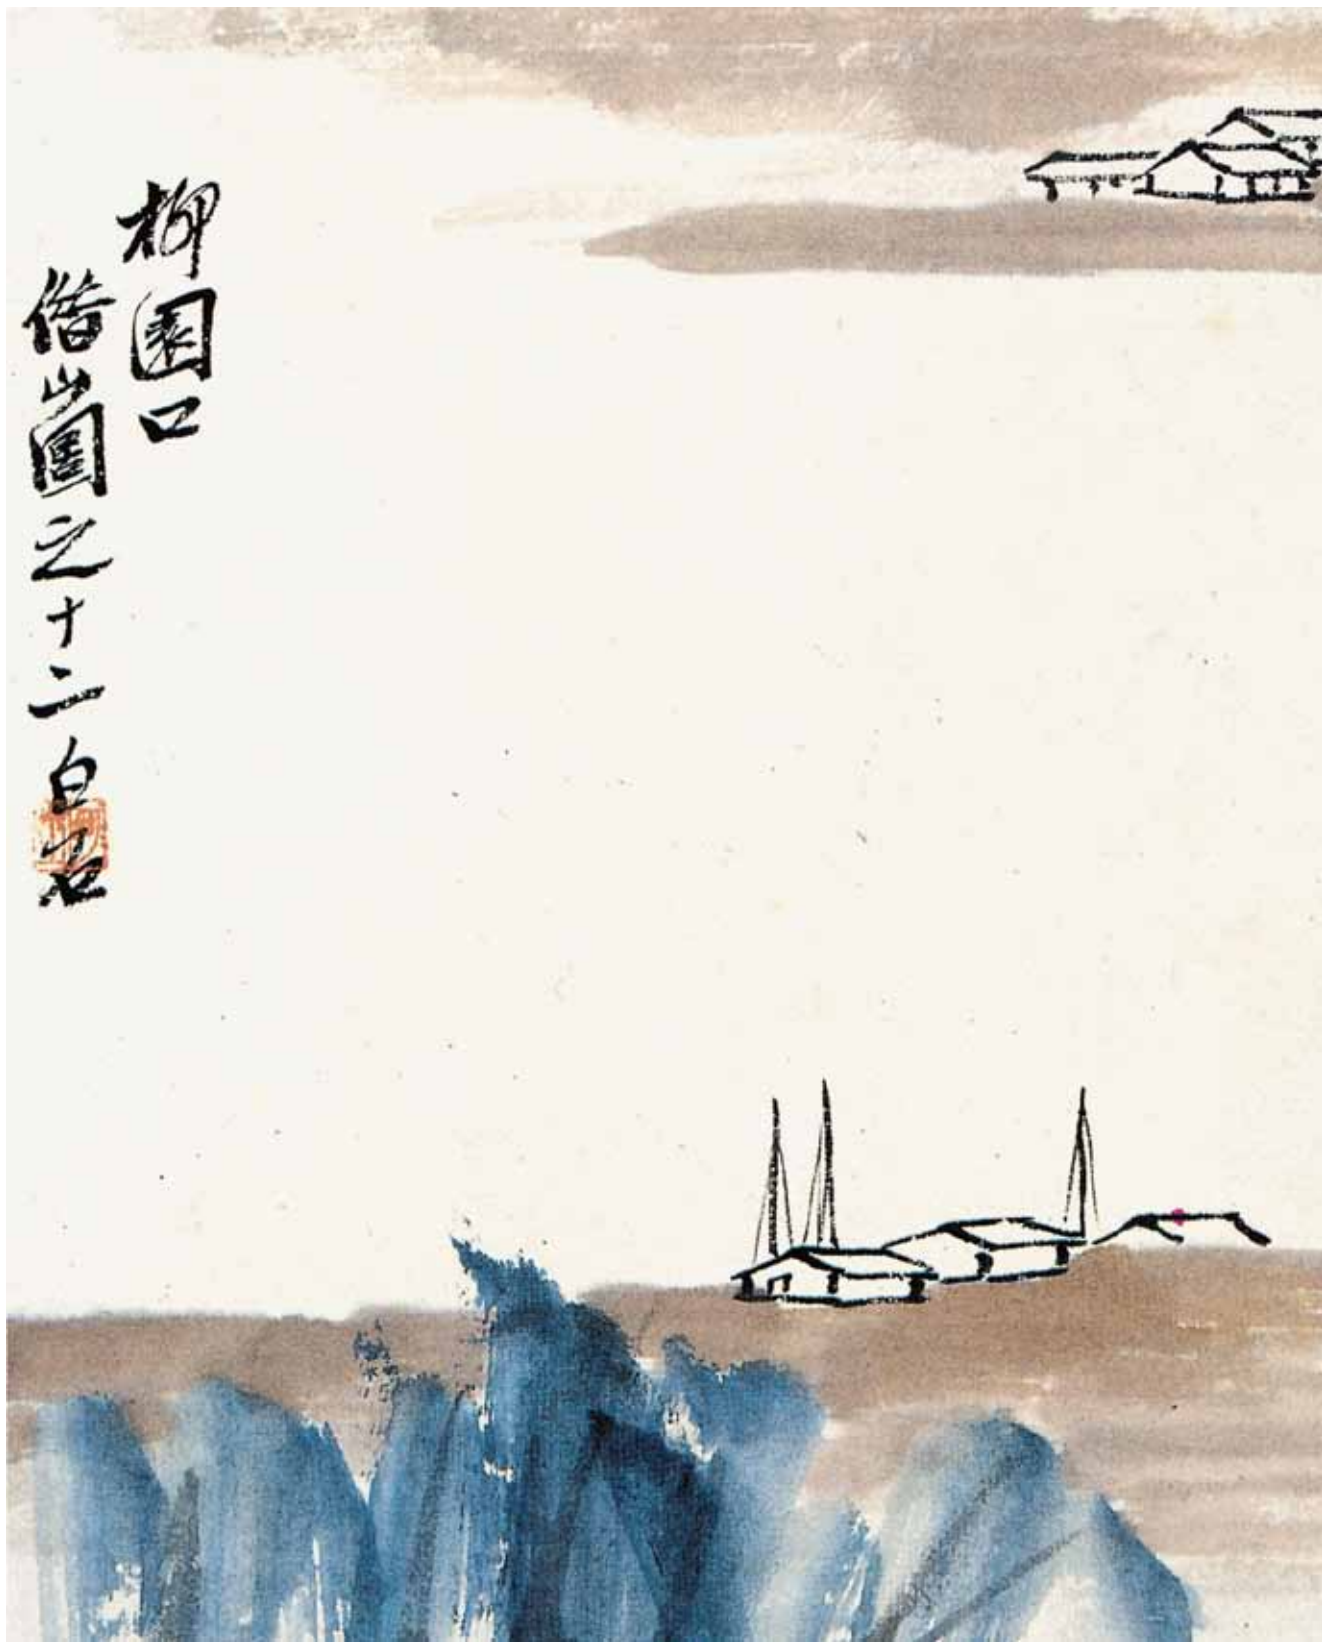 柳園口
借山圖之十二白石